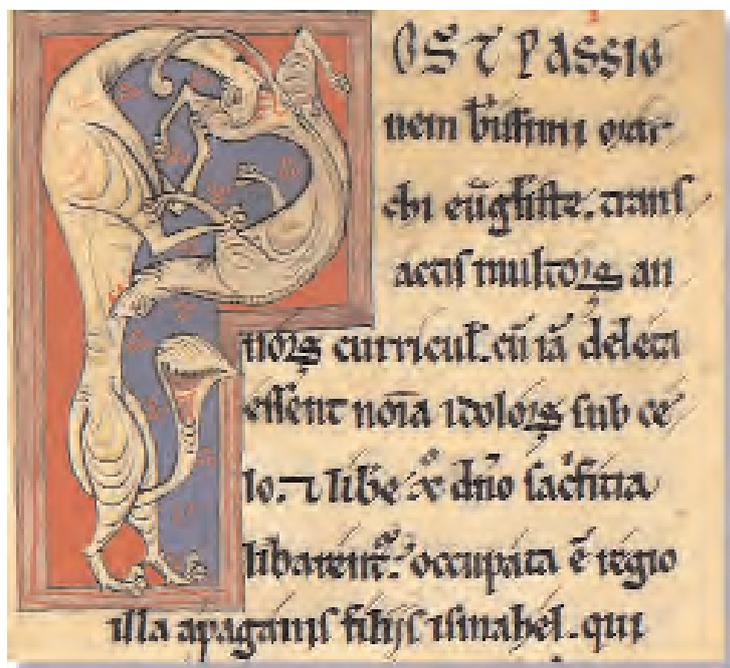 POST PASSIO
nem bissimi mar
chi eugliste. trans
actis multoꝝ an
noꝝ curricul. cu ia deleta
essent noia idoloꝝ sub ce
lo. ⁊ libe x dno sacficia
libarent. occupata e regio
illa apaganis filiis ismahel. qui